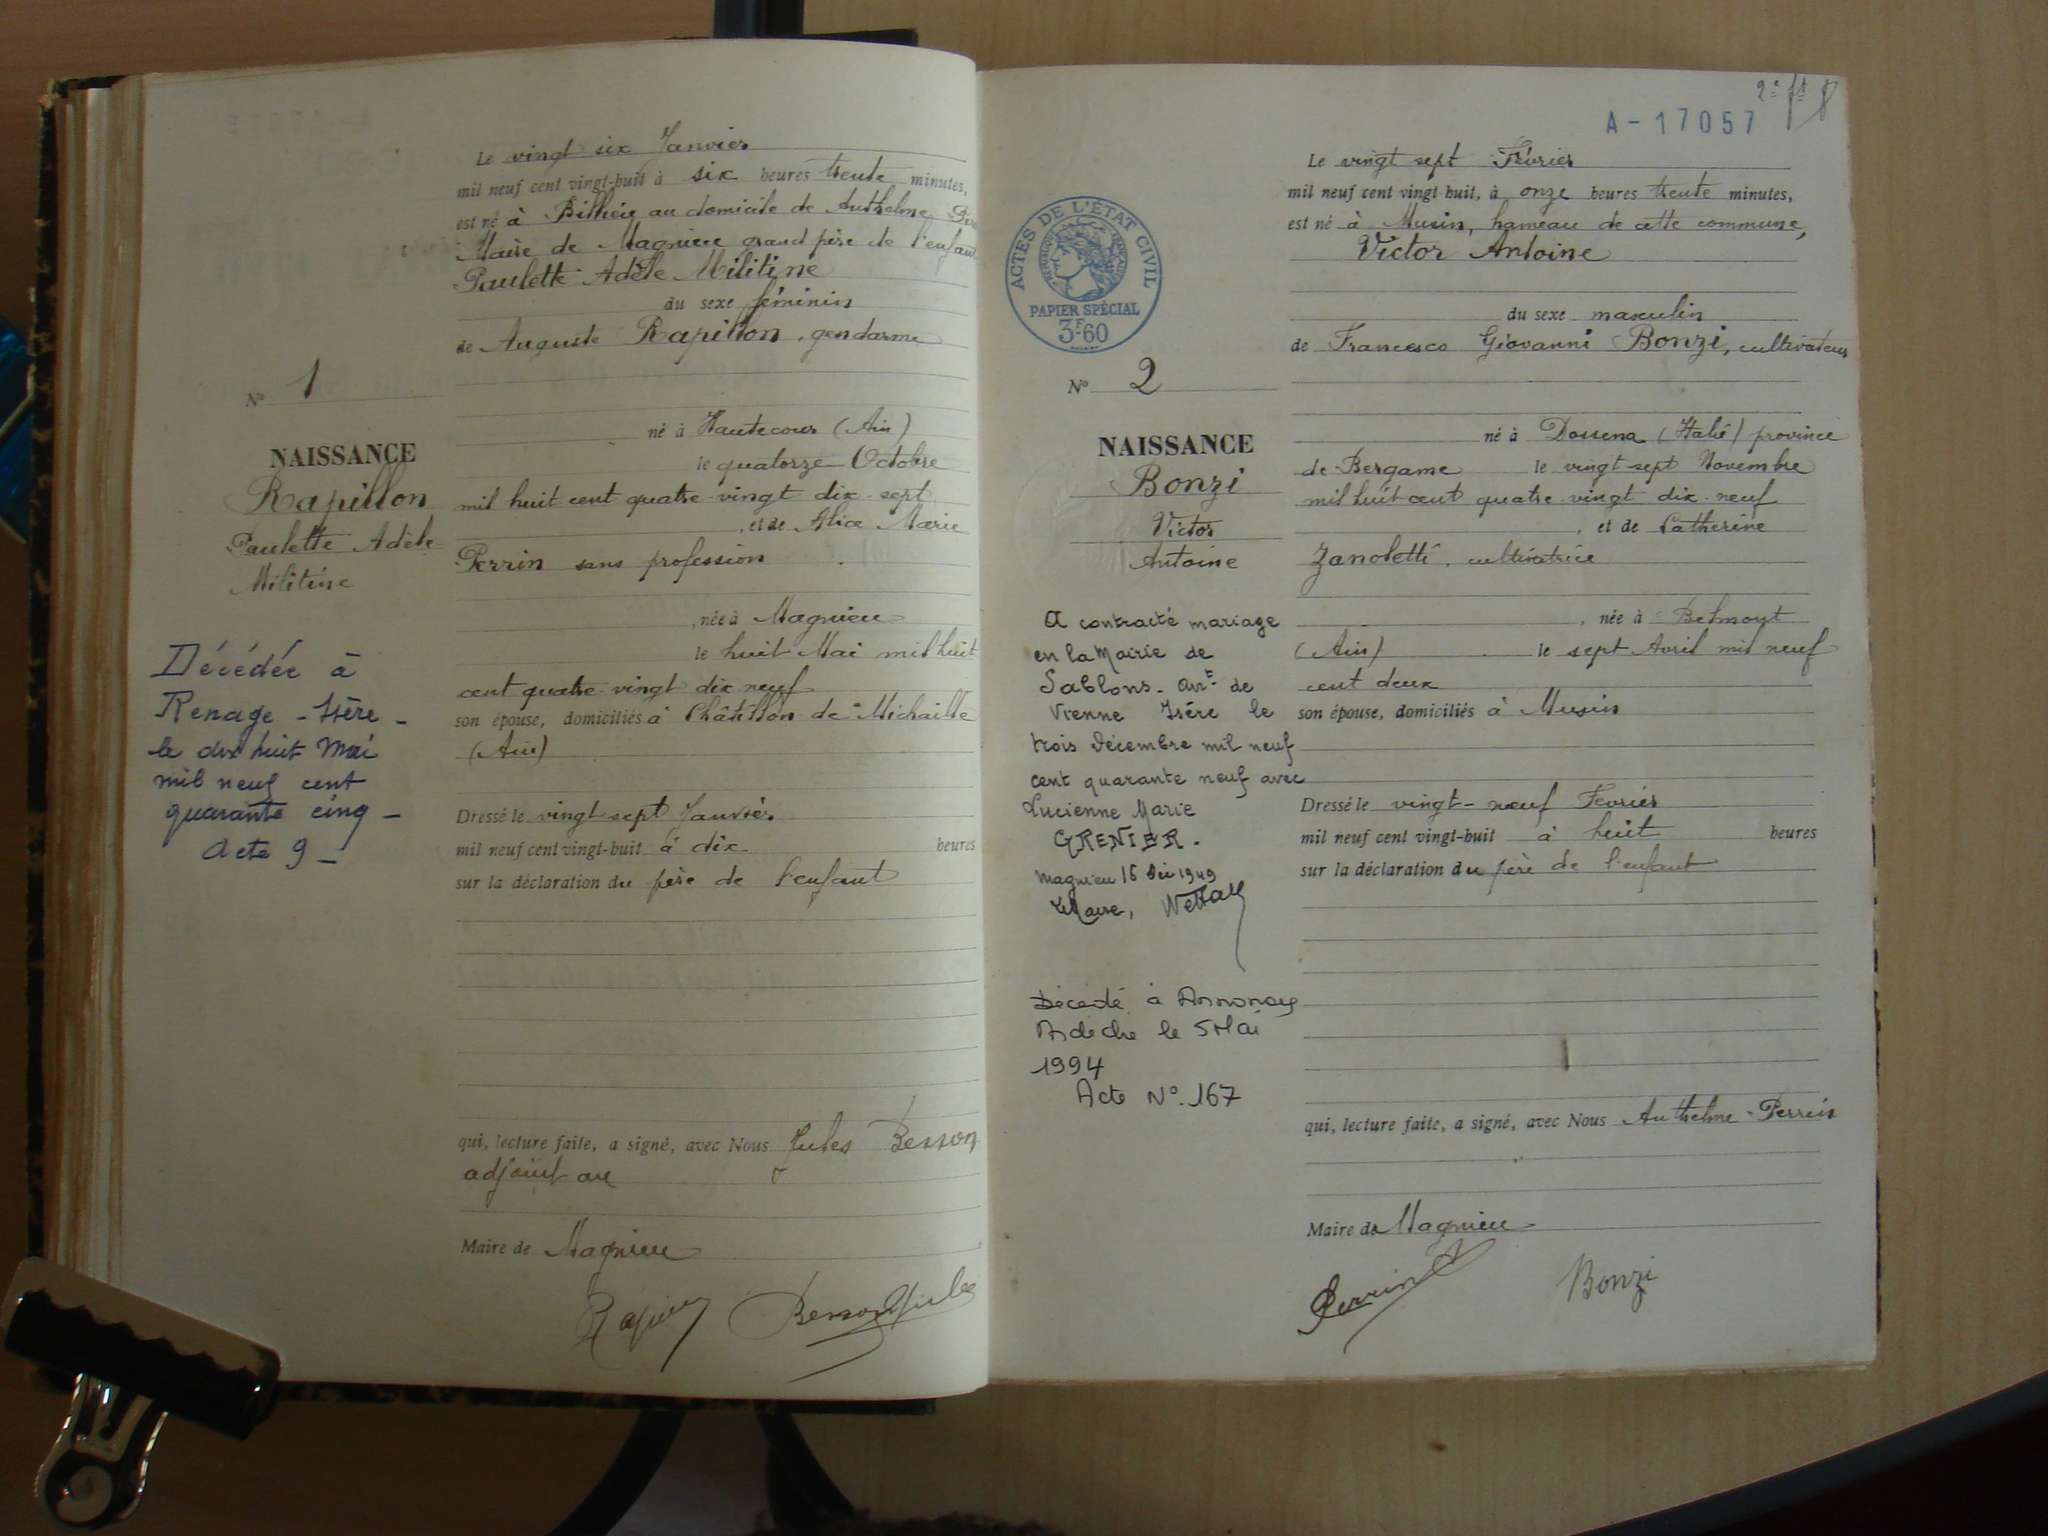 Le vingt six Janvier
mil neuf cent vingt-huit à six heures trente minutes,
est né à Billieu au domicile de Anthelme
Maire de Magnieu grand père de l'enfant
Paulette Adèle Militine
du sexe féminin
de Auguste Rapillon, gendarme
N° 1
né à Hautecour (Ain)
NAISSANCE
le quatorze Octobre
Rapillon
mil huit cent quatre-vingt dix-sept
, et de Alice Marie
Paulette Adèle
Perrin sans profession
Militine
, née à Magnieu
Décédée à
le huit Mai mil huit
cent quatre-vingt dix neuf
Renage - Isère -
son épouse, domiciliés à Châtillon-de-Michaille
le dix huit Mai
(Ain)
mil neuf cent
quarante cinq -
Dressé le vingt sept Janvier
Acte 9 -
mil neuf cent vingt-huit à dix heures
sur la déclaration du père de l'enfant
qui, lecture faite, a signé, avec Nous Jules Besson
adjoint au
Maire de Magnieu
Besson Jules
2e ft 8
A-17057
Le vingt sept Février
mil neuf cent vingt huit, à onze heures trente minutes,
est né à Musin, hameau de cette commune,
Victor Antoine
ACTES DE L'ÉTAT CIVIL
RÉPUBLIQUE FRANÇAISE
PAPIER SPÉCIAL
3F60
du sexe masculin
de Francesco Giovanni Bonzi, cultivateur
N° 2
né à Dossena (Italie) province
NAISSANCE
de Bergame le vingt-sept Novembre
Bonzi
mil huit cent quatre-vingt dix-neuf
Victor
, et de Catherine
Antoine
Zanoletti, cultivatrice
, née à Belmont
(Ain) le sept Avril mil neuf
cent deux
son épouse, domiciliés à Musin
A contracté mariage
en la Mairie de
Sablons - arrt de
Vienne Isére le
trois décembre mil neuf
cent quarante neuf avec
Lucienne Marie
GRENIER.
Magnieu 16 Déc 1949
Le Maire,
Dressé le vingt-neuf Février
mil neuf cent vingt-huit à huit heures
sur la déclaration du père de l'enfant
Décédé à Annonay
Ardèche le 5 Mai
1994
Acte N°. 167
qui, lecture faite, a signé, avec Nous Anthelme Perrin
Maire de Magnieu
Perrin A
Bonzi